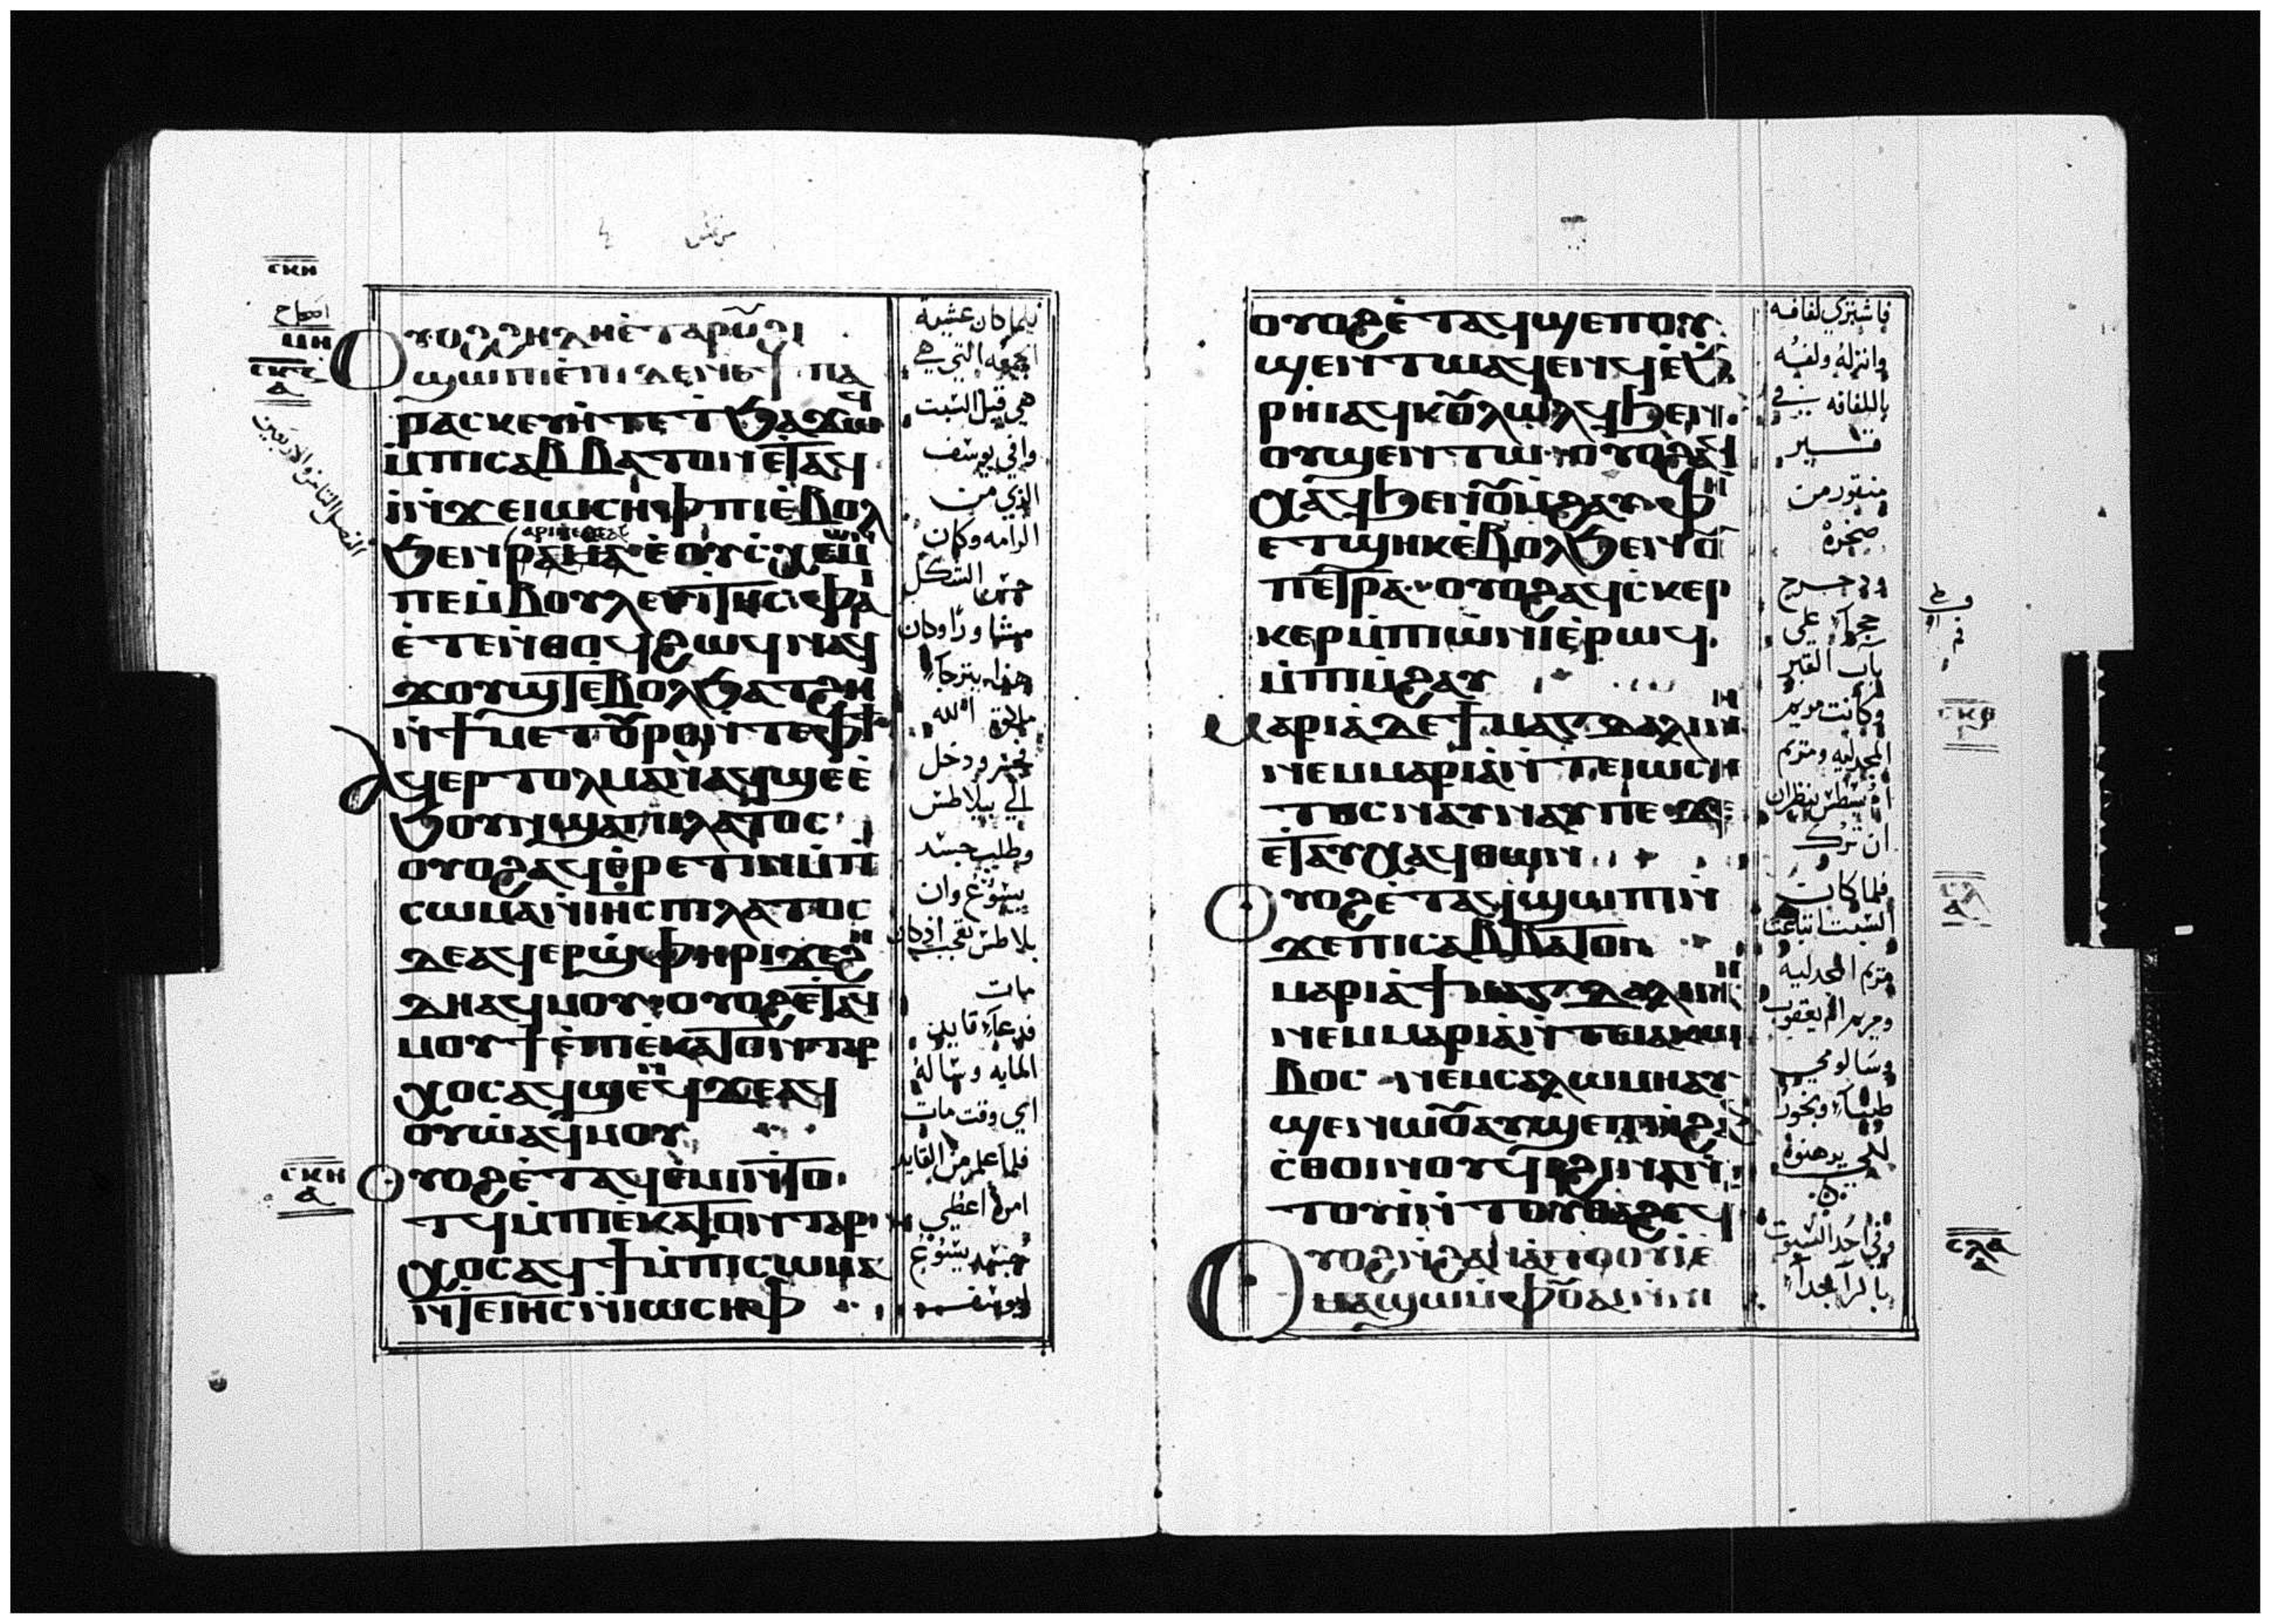 مرقس
ⲥⲕⲏ
اصحاح
ⲙⲏ
ⲥⲕⲍ
ⲁ
الفصل الثامن والاربعين
ⲟⲩⲟϩ ϩⲏⲇⲏ ⲉⲧⲁⲣⲟⲩϩⲓ
ϣⲱⲡⲓ ⲉⲡⲓⲇⲏ ⲛⲉ ϯⲡⲁ
ⲣⲁⲥⲕⲉⲩⲏ ⲧⲉ ⲉⲧϧⲁϫⲱϥ
ⲙⲡⲓⲥⲁⲃⲃⲁⲧⲟⲛ ⲉⲧⲁϥⲓ
ⲛϫⲉ ⲓⲱⲥⲏⲫ ⲡⲓⲉⲃⲟⲗ
ϧⲉⲛ
ⲉ ⲟⲩⲉⲩⲥⲭⲏⲙⲱⲛ
ⲡⲉ ⲙⲃⲟⲩⲗⲉⲩⲧⲏⲥ ⲫⲁⲓ
ⲉⲧⲉ ⲛⲑⲟϥ ϩⲱϥ ⲛⲁϥ
ϫⲟⲩϣⲧ ⲉⲃⲟⲗ ϧⲁⲧϩⲏ
ⲛϯⲙⲉⲧⲟⲩⲣⲟ ⲛⲧⲉ ⲫϯ
ⲁϥⲉⲣⲧⲟⲗⲙⲁⲛ ⲁϥϣⲉ ⲉ
ϧⲟⲩⲛ ϣⲁ ⲡⲓⲗⲁⲧⲟⲥ
ⲟⲩⲟϩ ⲁϥⲉⲣⲉⲧⲓⲛ ⲙⲡⲓ
ⲥⲱⲙⲁ ⲛⲓⲏⲥ ⲡⲓⲗⲁⲧⲟⲥ
ⲇⲉ ⲁϥⲉⲣϣⲫⲏⲣⲓ ϫⲉ ϩⲏ
ⲇⲏ ⲁϥⲙⲟⲩ ⲟⲩⲟϩ ⲉⲧⲁϥ
ⲙⲟⲩϯ ⲉⲡⲓⲉⲕⲁⲧⲟⲛⲧⲁⲣ
ⲭⲟⲥ ⲁϥϣⲉⲛϥ ϫⲉ ⲁϥ
ⲟⲩⲱ ⲁϥⲙⲟⲩ
ⲥⲕⲏ
ⲁ
ⲟⲩⲟϩ ⲉⲧⲁϥⲉⲙⲓ ⲛⲧⲟ
ⲧϥ ⲙⲡⲓⲉⲕⲁⲧⲟⲛⲧⲁⲣ
ⲭⲟⲥ ⲁϥϯ ⲙⲡⲓⲥⲱⲙⲁ
ⲛⲧⲉ ⲓⲏⲥ ⲛⲓⲱⲥⲏⲫ
فلما كان عشية
الجمعه التي هي
هي قبل السبت
وافي يوسف
الذي من
الرامه وكان
حسن الشكل
مشاورًا وكان
ملكوت الله
فجسر ودخل
الي بيلاطس
وطلب جسد
يسوع وان
بلاطس تعجب اذ كان
مات
فدعا قايد
المايه وساله
اي وقت مات
فلما علم من القايد
امره اعطي
جسد يسوع
ليوسف
ⲟⲩⲟϩ ⲉⲧⲁϥϣⲉⲡ ⲟⲩ
ϣⲉⲛⲧⲱ ⲁϥⲉⲛϥ ⲉϧ
ⲣⲏⲓ ⲁϥⲕⲟⲩⲗⲱⲗϥ ϧⲉⲛ
ⲟⲩϣⲉⲛⲧⲱ ⲟⲩⲟϩ ⲁϥ
ⲭⲁϥ ϧⲉⲛ ⲟⲩⲙϩⲁⲩ ⲫⲏ
ⲉⲧϣⲏⲕ ⲉⲃⲟⲗ ϧⲉⲛ ⲟⲩ
ⲡⲉⲧⲣⲁ ⲟⲩⲟϩ ⲁϥⲥⲕⲉⲣ
ⲕⲉⲣ ⲙⲡⲓⲱⲛⲓ ⲉⲣⲱϥ
ⲙⲡⲓⲙϩⲁⲩ
ⲙⲁⲣⲓⲁ ⲇⲉ ϯⲙⲁⲅⲇⲁⲗⲓⲛⲏ
ⲛⲉⲙ ⲙⲁⲣⲓⲁ ⲛⲧⲉ ⲓⲱⲥⲏ
ⲧⲟⲥ ⲛⲁⲩⲛⲁⲩ ⲡⲉ ϫⲉ
ⲉⲧⲁⲩⲭⲁϥ ⲑⲱⲛ
ⲟⲩⲟϩ ⲉⲧⲁϥϣⲱⲡⲓ ⲛ
ϫⲉ ⲡⲓⲥⲁⲃⲃⲁⲧⲟⲛ
ⲙⲁⲣⲓⲁ ϯⲙⲁⲅⲇⲁⲗⲓⲛⲏ
ⲛⲉⲙ ⲙⲁⲣⲓⲁ ⲛⲧⲉ ⲓⲁⲕⲱ
ⲃⲟⲥ ⲛⲉⲙ ⲥⲁⲗⲱⲙⲏ ⲁⲩ
ϣⲉⲛⲱⲟⲩ ⲁⲩϣⲉⲡ
ⲥⲑⲟⲓⲛⲟⲩϥⲓ ϩⲓⲛⲁ ⲛ
ⲧⲟⲩⲓ ⲛⲧⲟⲩⲑⲁϩⲥϥ
ⲟⲩⲟϩ ⲛϩⲁⲛⲁⲧⲟⲟⲩⲓ ⲉ
ⲙⲁϣⲱ ⲙⲫⲟⲩⲁⲓ ⲛⲛⲓ
فاشتري لفافه
وانزله ولفه
باللفافه في
قبر
منقور من
صخره
ودحرج
حجرا علي
باب القبر
وكانت مريم
المجدليه ومريم
ام يسطس ينظران
ان ترك
فلما كان
السبت ابتاعت
مريم المجدليه
ومريم ام يعقوب
وسالومي
طيبا وبخور
لكي يدهنوه
وفي احد السبوت
باكرا جدا
ⲥⲕⲑ
ⲥⲗ
ⲁ
ⲥⲗⲁ
ⲁ